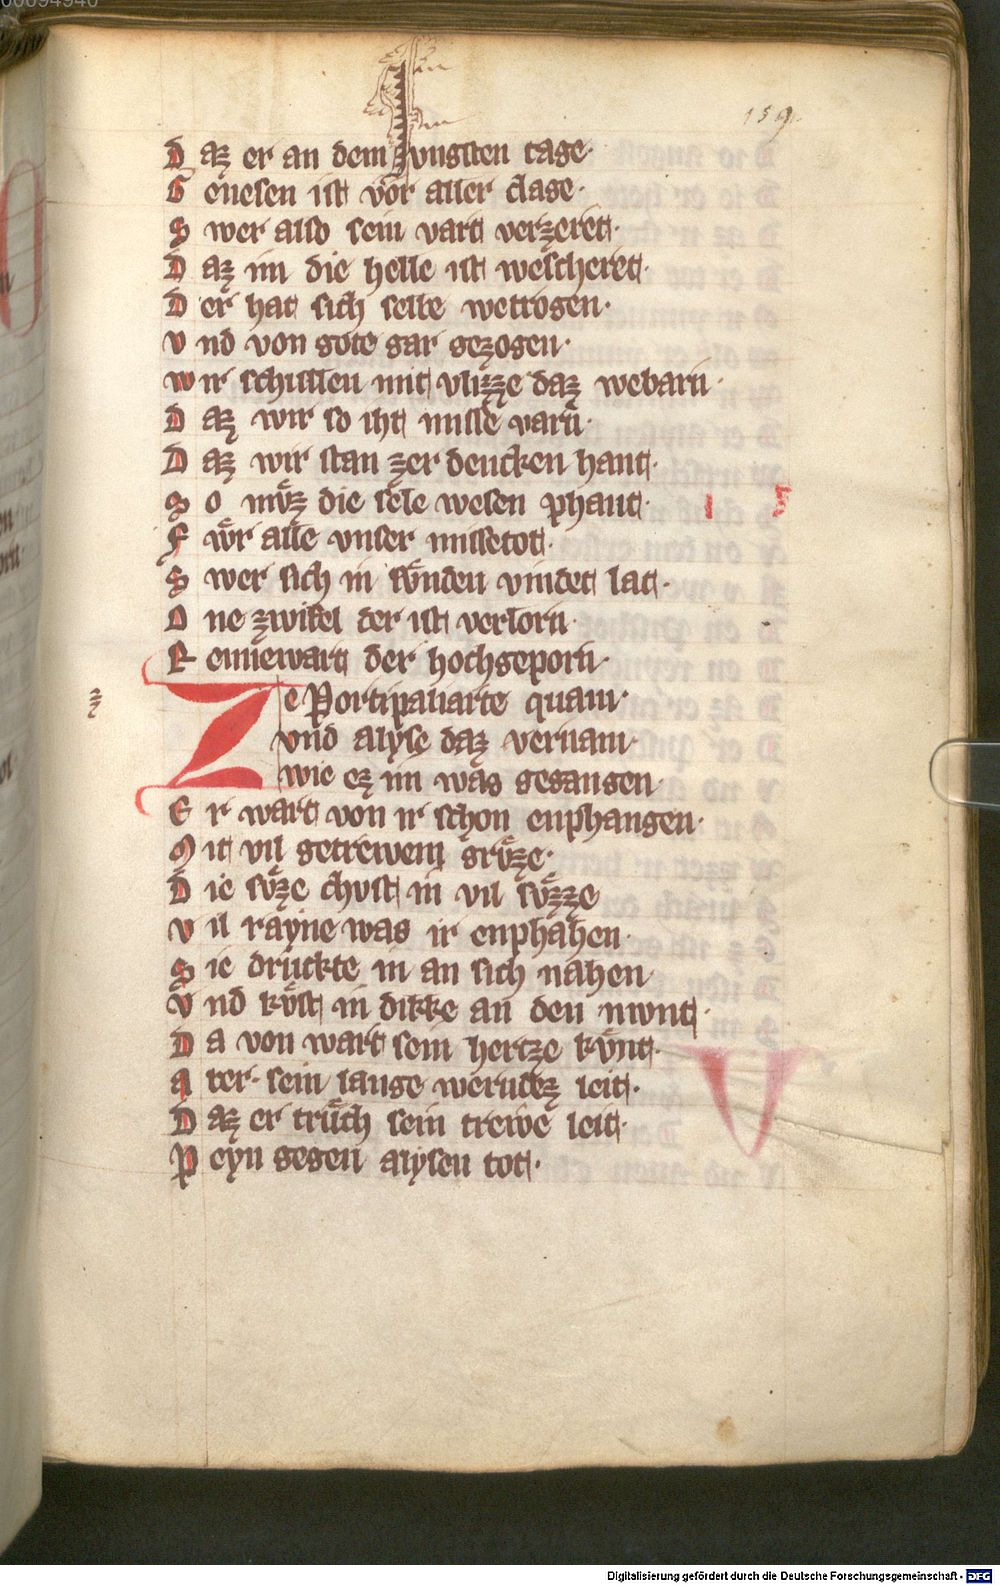 159.
D az er an dem Jungsten tage·
G enesen ist vor aller clage·
S wer also sein vart verzeret·
D az im die helle ist wescheret·
D er hat sich selbe wetrogen·
V nd von gote gar gezogen·
W ir schullen mit vlizze daz webarn·
D az wir so iht misse varn·
D az wir stan zer dencken hant·
S o mvͤz die sele wesen phant·
F wͤr alle vnser missetot·
S wer sich in svͤnden vinden lat·
O ne zwifel der ist verlorn
R ennewart der hochgeporn·
Ze Portipaliarte quam·
vnd alyse daz vernam·
wie ez im was gegangen·
E r wart von ir schon enphangen·
M it vil getrewem grvͤze·
D ie svͤze chust in vil svͤzze
V il rayne was ir enphahen·
S ie druckte in an sich nahen
V nd kvͤst in dikke an den mvnt·
D a von wart sein hertze kvͤnt·
A ber· sein lange werndez leit·
D az er truͤch sein trewe leit·
P eyn gegen alysen tot·
Digitalisierung gefördert durch die Deutsche Forschungsgemeinschaft - DFG